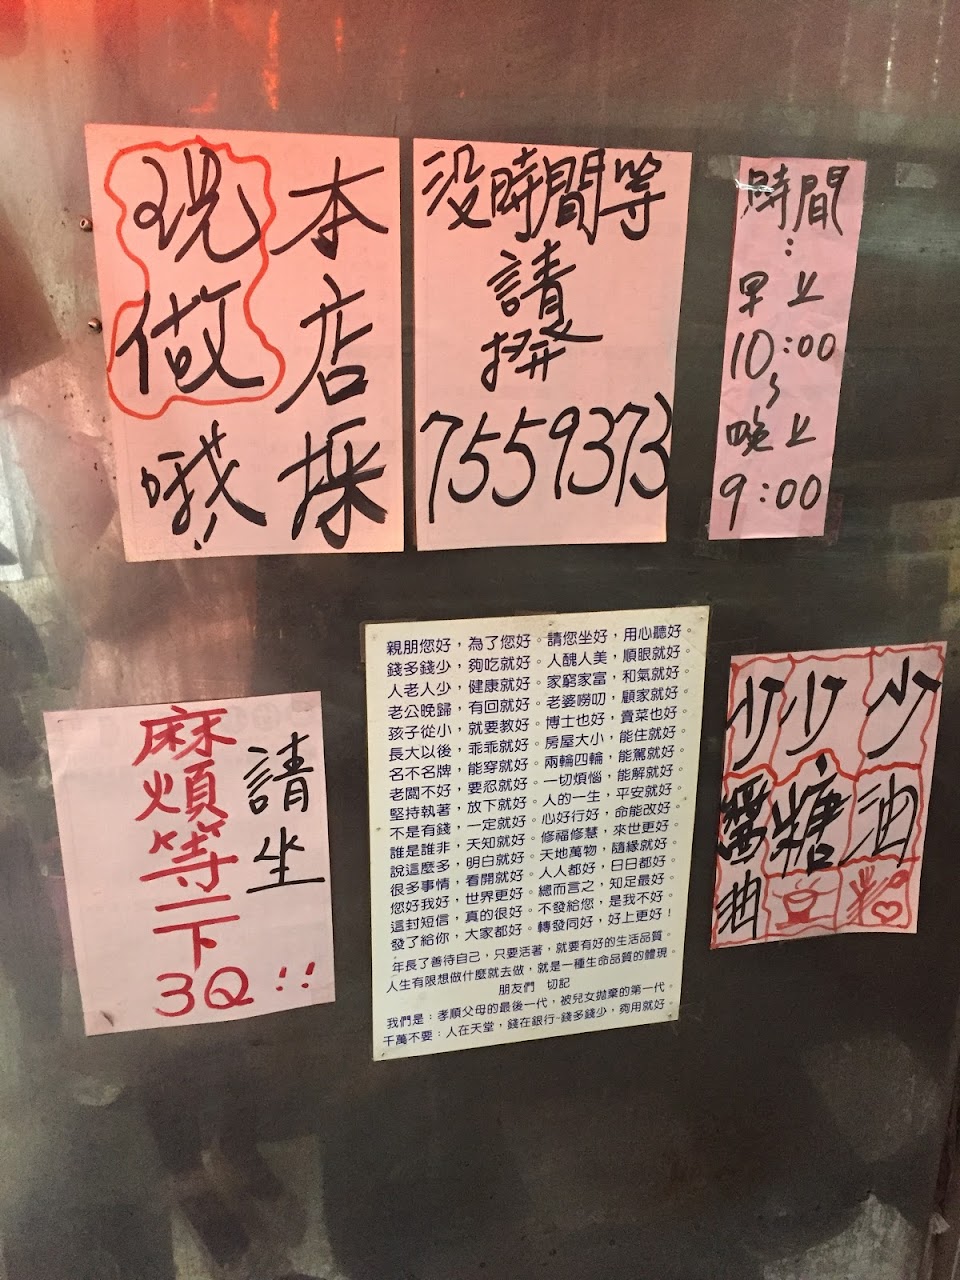 本店採
現做
哦!
没時間等
請
撥
7559373
時間
:
早上
10:00
~
晚上
9:00
請坐
麻煩等一下
3Q!!
親朋您好，為了您好。請您坐好，用心聽好。
錢多錢少，夠吃就好。人醜人美，順眼就好。
人老人少，健康就好。家窮家富，和氣就好。
老公晚歸，有回就好。老婆嘮叨，顧家就好。
孩子從小，就要教好。博士也好，賣菜也好。
長大以後，乖乖就好。房屋大小，能住就好。
名不名牌，能穿就好。兩輪四輪，能駕就好。
老闆不好，要忍就好。一切煩惱，能解就好。
堅持執著，放下就好。人的一生，平安就好。
不是有錢，一定就好。心好行好，命能改好。
誰是誰非，天知就好。修福修慧，來世更好。
說這麼多，明白就好。天地萬物，隨緣就好。
很多事情，看開就好。人人都好，日日都好。
您好我好，世界更好。總而言之，知足最好。
這封短信，真的很好。不發給您，是我不好。
發了給你，大家都好。轉發同好，好上更好！
年長了善待自己，只要活著，就要有好的生活品質。
人生有限想做什麼就去做，就是一種生命品質的體現。
朋友們　切記
我們是：孝順父母的最後一代，被兒女拋棄的第一代。
千萬不要：人在天堂，錢在銀行-錢多錢少，夠用就好。
少油
少糖
少醬油